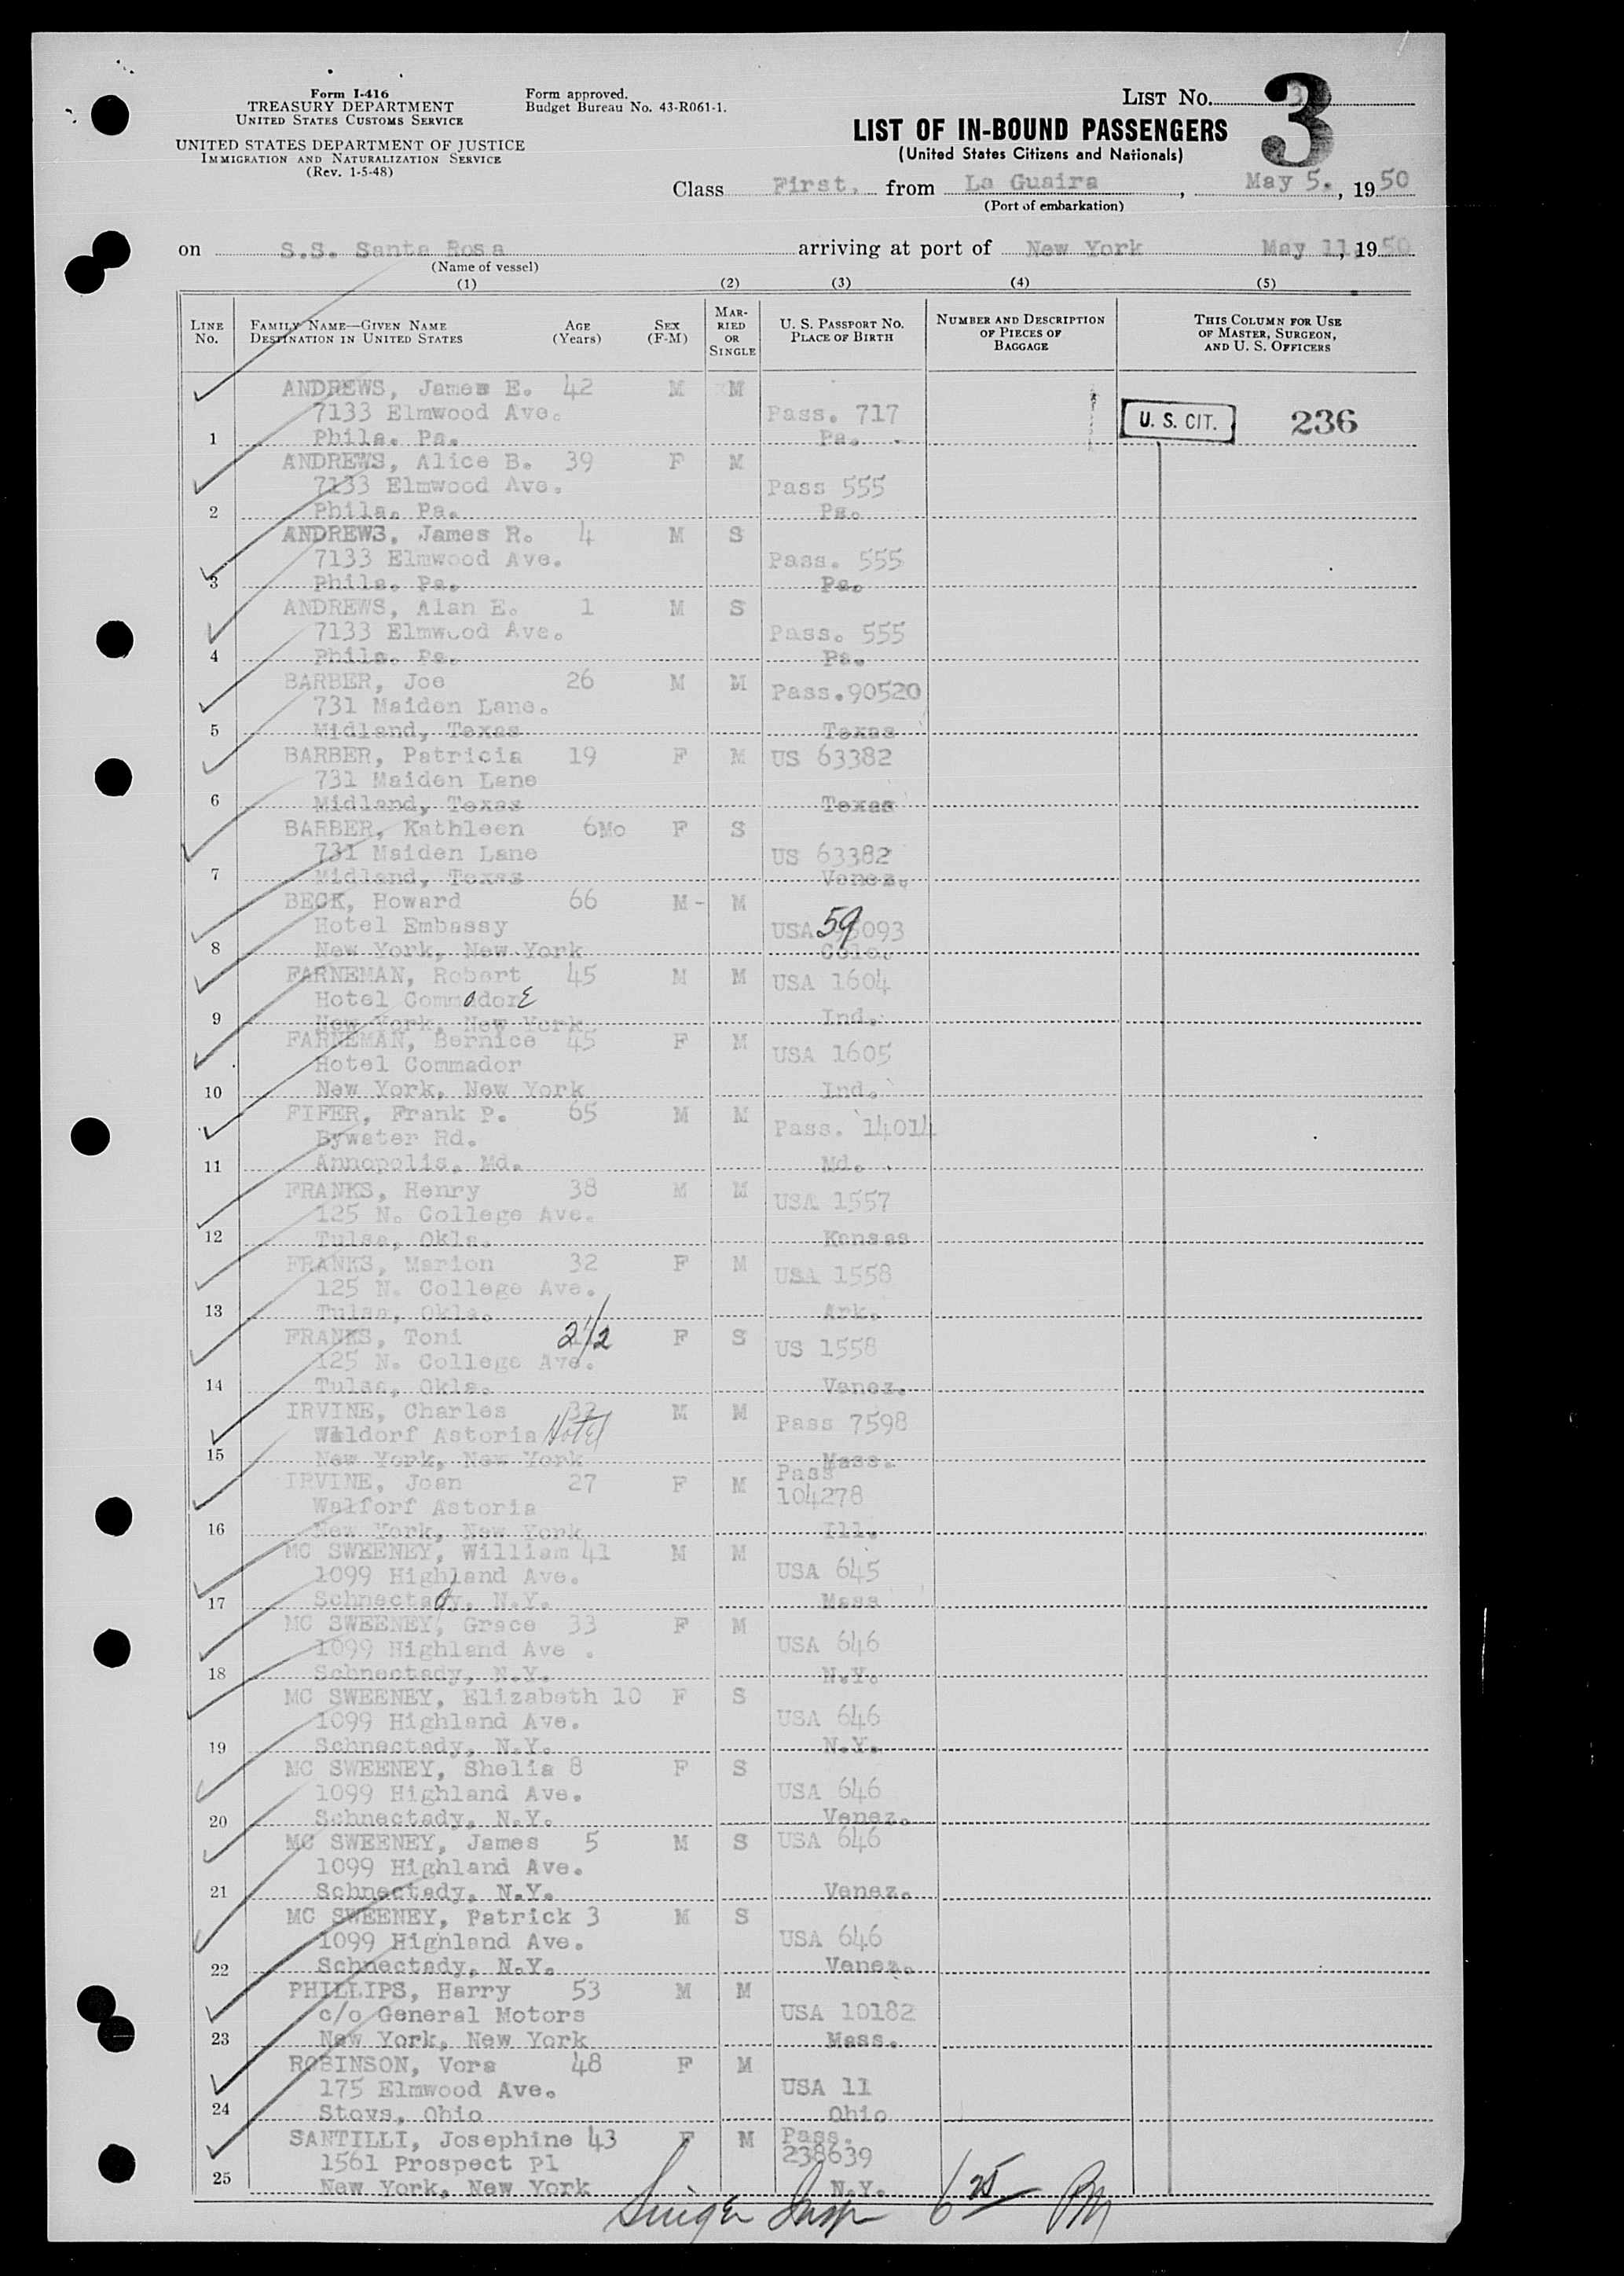 Form I-416
TREASURY DEPARTMENT
UNITED STATES CUSTOMS SERVICE
UNITED STATES DEPARTMENT OF JUSTICE
IMMIGRATION AND NATURALIZATION SERVICE
(Rev. 1-5-48)
Form approved.
Budget Bureau No. 43-R061-1.
LIST No. 3
LIST OF IN-BOUND PASSENGERS
(United States Citizens and Nationals)
Class First. from La Guaira, May 5., 1950
(Port of embarkation)
on S.S. Santa Rosa arriving at port of New York May 11, 1950
(Name of vessel)
(1) (2) (3) (4) (5)
LINE No. FAMILY NAME—GIVEN NAME DESTINATION IN UNITED STATES AGE (Years) SEX (F-M) MARRIED OR SINGLE U. S. PASSPORT NO. PLACE OF BIRTH NUMBER AND DESCRIPTION OF PIECES OF BAGGAGE THIS COLUMN FOR USE OF MASTER, SURGEON, AND U. S. OFFICERS
ANDREWS, James E. 42 M M
7133 Elmwood Ave. Pass. 717 U. S. CIT. 236
1 Phila. Pa. Pa.
ANDREWS, Alice B. 39 F M
7133 Elmwood Ave. Pass 555
2 Phila. Pa. Pa.
ANDREWS, James R. 4 M S
7133 Elmwood Ave. Pass. 555
3 Phila. Pa. Pa.
ANDREWS, Alan E. 1 M S
7133 Elmwood Ave. Pass. 555
4 Phila. Pa. Pa.
BARBER, Joe 26 M M Pass.90520
731 Maiden Lane.
5 Midland, Texas Texas
BARBER, Patricia 19 F M US 63382
731 Maiden Lane
6 Midland, Texas Texas
BARBER, Kathleen 6Mo F S
731 Maiden Lane US 63382
7 Midland, Texas Venez.
BECK, Howard 66 M - M
Hotel Embassy USA 59093
8 New York, New York Colo.
FARNEMAN, Robert 45 M M USA 1604
Hotel Commodore
9 New York, New York Ind.
FARNEMAN, Bernice 45 F M USA 1605
Hotel Commador
10 New York, New York Ind.
FIFER, Frank P. 65 M M Pass. 14014
Bywater Rd.
11 Annopolis, Md. Md.
FRANKS, Henry 38 M M USA 1557
125 N. College Ave.
12 Tulsa, Okla. Kansas
FRANKS, Marion 32 F M USA 1558
125 N. College Ave.
13 Tulsa, Okla. Ark.
FRANKS, Toni 2 1/2 F S US 1558
125 N. College Ave.
14 Tulsa, Okla. Venez.
IRVINE, Charles 32 M M Pass 7598
Waldorf Astoria Hotel
15 New York, New York Mass.
IRVINE, Joan 27 F M Pass 104278
Walforf Astoria
16 New York, New York Ill.
MC SWEENEY, William 41 M M
1099 Highland Ave. USA 645
17 Schnectady, N.Y. Mass
MC SWEENEY, Grace 33 F M
1099 Highland Ave . USA 646
18 Schnectady, N.Y. N.Y.
MC SWEENEY, Elizabeth 10 F S
1099 Highland Ave. USA 646
19 Schnectady, N.Y. N.Y.
MC SWEENEY, Shelia 8 F S
1099 Highland Ave. USA 646
20 Schnectady, N.Y. Venez.
MC SWEENEY, James 5 M S USA 646
1099 Highland Ave.
21 Schnectady, N.Y. Venez.
MC SWEENEY, Patrick 3 M S
1099 Highland Ave. USA 646
22 Schnectady, N.Y. Venez.
PHILLIPS, Harry 53 M M
c/o General Motors USA 10182
23 New York, New York Mass.
ROBINSON, Vora 48 F M
175 Elmwood Ave. USA 11
24 Stovs, Ohio Ohio
SANTILLI, Josephine 43 F M Pass.
1561 Prospect Pl 238639
25 New York, New York N.Y.
Singer Insp 6 25 PM